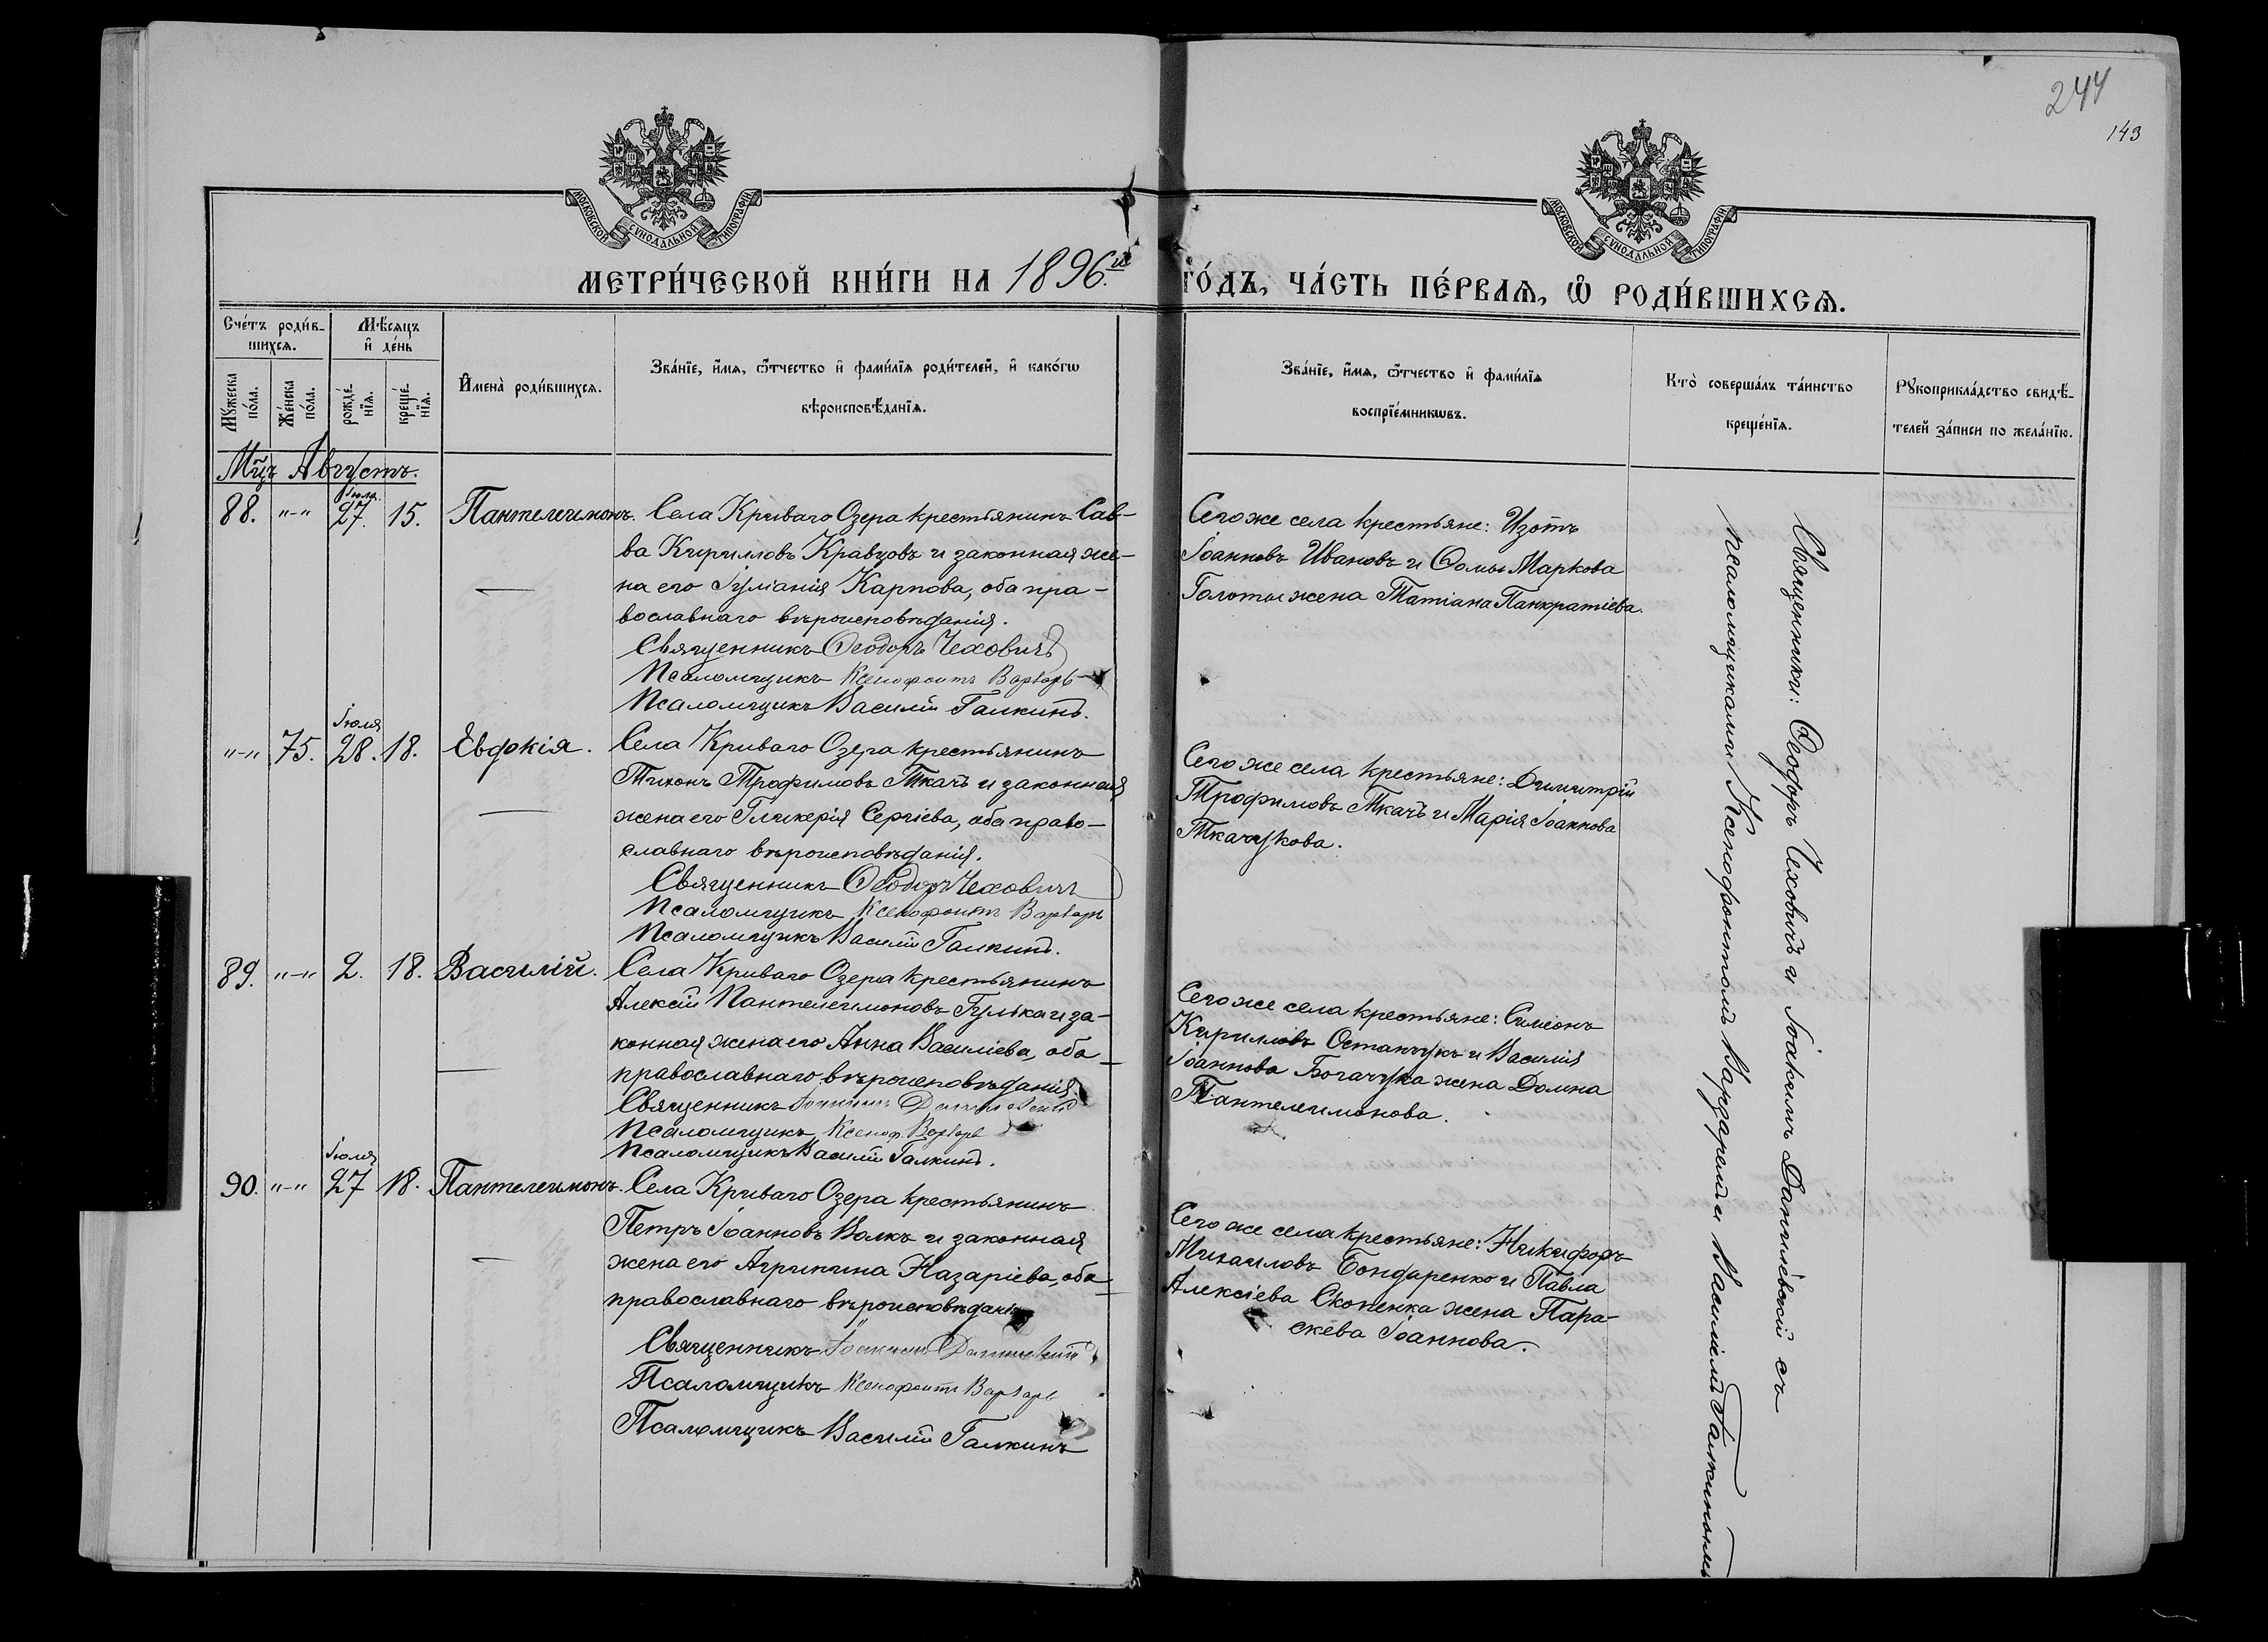 244
143
МОСКОВСКОЙ СѴНОДАЛЬНОЙ ТИПОГРАФІИ
МОСКОВСКОЙ СѴНОДАЛЬНОЙ ТИПОГРАФІИ
МЕТРИ́ЧЕСКОЙ КНИ́ГИ НА 1896.й ГО́ДЪ, ЧА́СТЬ ПЕ́РВАѦ, Ѡ҆ РОДИ́ВШИХСѦ.
Сче́тъ роди́в-
шихсѧ.
Мꙋ́жеска
по́ла.
Же́нска
по́ла.
Мѣ́сѧцъ
и҆ де́нь
рожде́-
нїѧ.
креще́-
нїѧ.
И҆мена̀ роди́вшихсѧ.
Зва́нїе, и҆́мѧ, ѻ҆́тчество и҆ фами́лїѧ роди́телей, и҆ како́гѡ
вѣроисповѣ́данїѧ.
Зва́нїе, и҆́мѧ, ѻ҆́тчество и҆ фами́лїѧ
воспрїе́мникѡвъ.
Кто̀ соверша́лъ та́инство
креще́нїѧ.
Рꙋкоприкла́дство свидѣ́-
телей за́писи по жела́нїю.
Мцъ Августъ.
Іюля
88. "-" 27. 15. Пантелеимонъ.
Села Криваго Озера крестьянинъ Сав-
ва Кирилловъ Кравцовъ и законная же-
на его Іуліанія Карпова, оба пра-
вославнаго вѣроисповѣданія.
Священникъ Ѳеодоръ Чеховичъ
Псаломщикъ Ксенофонтъ Варварь
Псаломщикъ Василій Галкинъ.
Сего же села крестьяне: Изотъ
Іоанновъ Ивановъ и Ѳомы Маркова
Голоты жена Татіана Панкратіева.
Іюля
"-" 75. 28. 18. Евдокія.
Села Криваго Озера крестьянинъ
Тихонъ Трофимовъ Ткачъ и законная
жена его Гликерія Сергіева, оба право-
славнаго вѣроисповѣданія.
Священникъ Ѳеодоръ Чеховичъ
Псаломщикъ Ксенофонтъ Варварь
Псаломщикъ Василій Галкинъ.
Сего же села крестьяне: Димитрій
Трофимовъ Ткачъ и Марія Іоаннова
Ткачукова.
89. "-" 2. 18. Василій.
Села Криваго Озера крестьянинъ
Алексій Пантелеимоновъ Гулька и за-
конная жена его Анна Василіева, оба
православнаго вѣроисповѣданія.
Священникъ Іоакимъ Данилевскій
Псаломщикъ Ксеноф. Варварь
Псаломщикъ Василій Галкинъ.
Сего же села крестьяне: Симеонъ
Кирилловъ Остапчукъ и Василія
Іоаннова Богачука жена Домна
Пантелеимонова.
Іюля
90. "-" 27 18. Пантелеимонъ.
Села Криваго Озера крестьянинъ
Петръ Іоанновъ Волкъ и законная
жена его Агрипина Назаріева, оба
православнаго вѣроисповѣданія
Священникъ Іоакимъ Данилевскій
Псаломщикъ Ксенофонтъ Варварь
Псаломщикъ Василій Галкинъ
Сего же села крестьяне: Никифоръ
Михаиловъ Бондаренко и Павла
Алексіева Скопенка жена Пара-
скева Іоаннова.
Священники: Ѳеодоръ Чеховичъ и Іоакимъ Данилевскій съ
псаломщиками Ксенофонтомъ Варваремъ и Василіемъ Галкинымъ